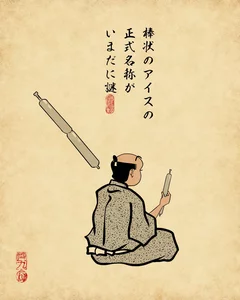 棒状のアイスの
正式名称が
いまだに謎